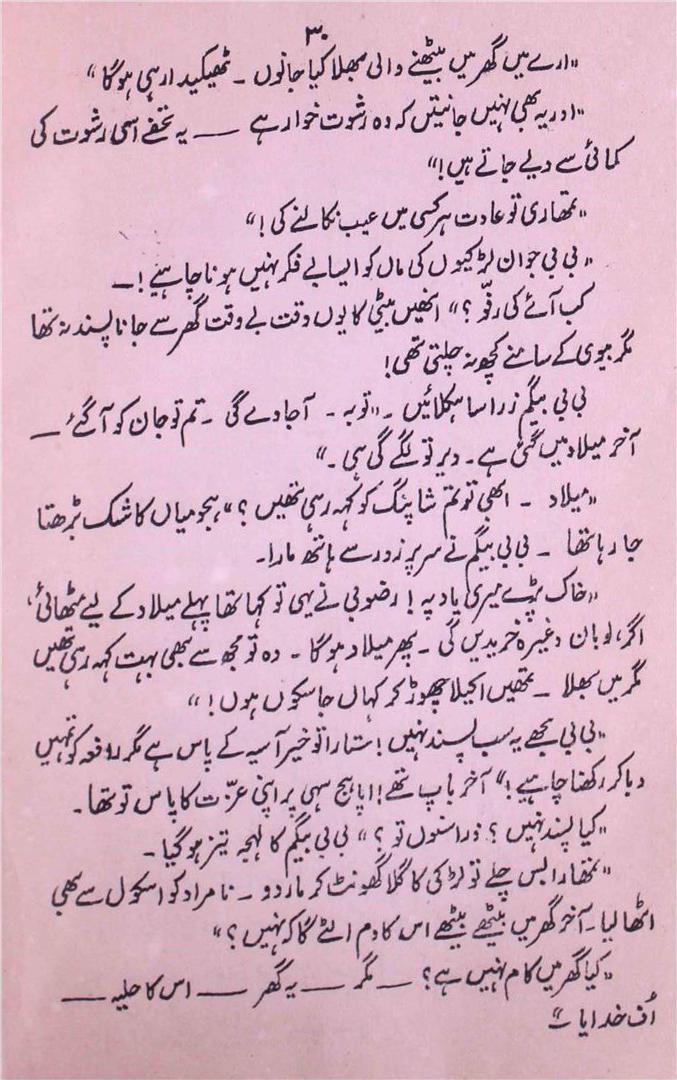 ۳۰
"ارے میں گھر میں بیٹھنے والی بھلا کیا جانوں ۔ ٹھیکیدار ہی ہوگا"
"اور یہ بھی نہیں جانتیں کہ وہ رشوت خوار ہے —— یہ تحفے اسی رشوت کی
کمائی سے دیے جاتے ہیں!"
"تمھاری تو عادت ہر کسی میں عیب نکالنے کی!"
"بی بی جوان لڑکیوں کی ماں کو ایسا بے فکر نہیں ہونا چاہیے! —
کب آئے گی رفّو ؟" انھیں بیٹی کا یوں وقت بے وقت گھر سے جانا پسند نہ تھا
مگر بیوی کے سامنے کچھ نہ چلتی تھی!
بی بی بیگم زرا سا ہکلائیں ۔ "توبہ ۔ آجاوے گی ۔ تم تو جان کو آگئے —
آخر میلاد میں گئی ہے ۔ دیر تو لگے گی ہی ۔"
"میلاد ۔ ابھی تو تم شاپنگ کو کہہ رہی تھیں ؟" ہجو میاں کا شک بڑھتا
جا رہا تھا ۔ بی بی بیگم نے سر پر زور سے ہاتھ مارا۔
"خاک پڑے میری یاد پہ ! رضو بی نے یہی تو کہا تھا پہلے میلاد کے لیے مٹھائی،
اگر، لوبان وغیرہ خریدیں گی ۔ پھر میلاد ہوگا ۔ وہ تو مجھ سے بھی بہت کہہ رہی تھیں
مگر میں بھلا ۔ تمھیں اکیلا چھوڑ کر کہاں جا سکوں ہوں ! "
"بی بی مجھے یہ سب پسند نہیں ! ستارا تو خیر آسیہ کے پاس ہے مگر رفعہ کو تمہیں
دبا کر رکھنا چاہیے !" آخر باپ تھے! اپاہج سہی پر اپنی عزّت کا پاس تو تھا۔
"کیا پسند نہیں ؟ ذرا سنوں تو ؟" بی بی بیگم کا لہجہ تیز ہوگیا ۔
"تمھارا بس چلے تو لڑکی کا گلا گھونٹ کر مار دو ۔ نامراد کو اسکول سے بھی
اٹھا لیا ۔ آخر گھر میں بیٹھے بیٹھے اس کا دم الٹے گا کہ نہیں ؟"
"کیا گھر میں کام نہیں ہے ؟ — مگر — یہ گھر —— اس کا حلیہ ——
اُف خدایا —"